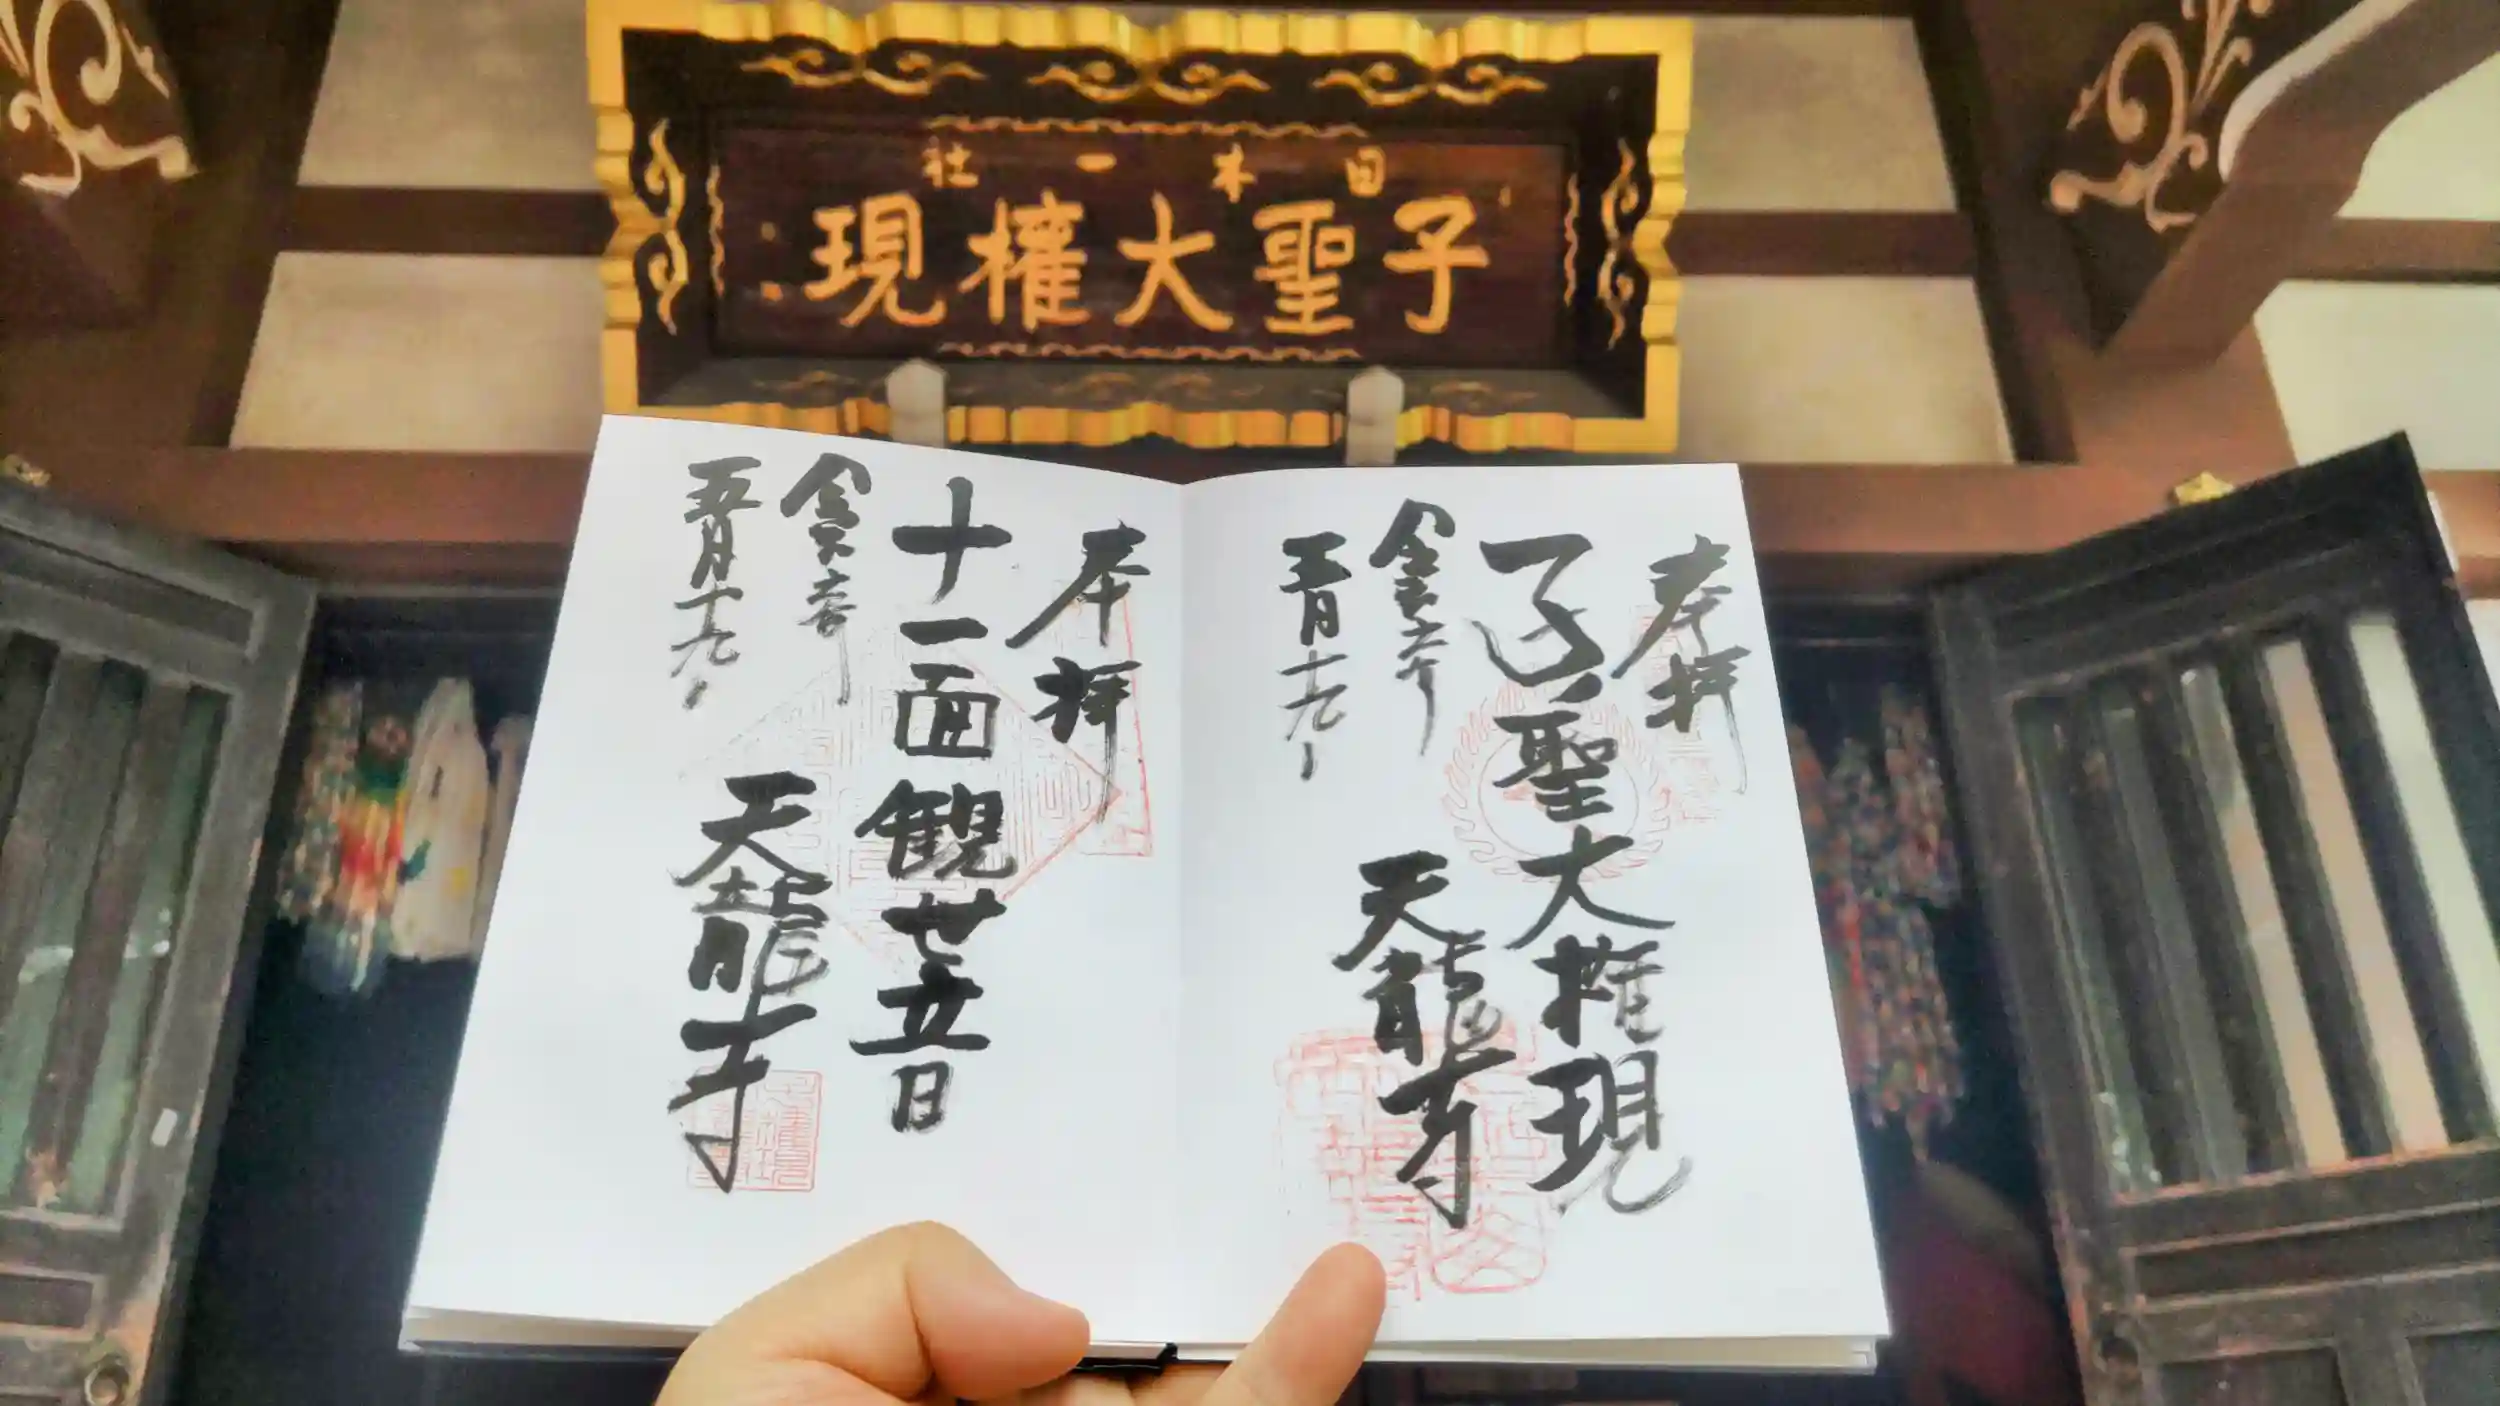 日本一社
子聖大権現
奉拝
子の聖大権現
令和六年
五月十九日
天龍寺
奉拝
十一面観世音
令和六年
五月十九日
天龍寺